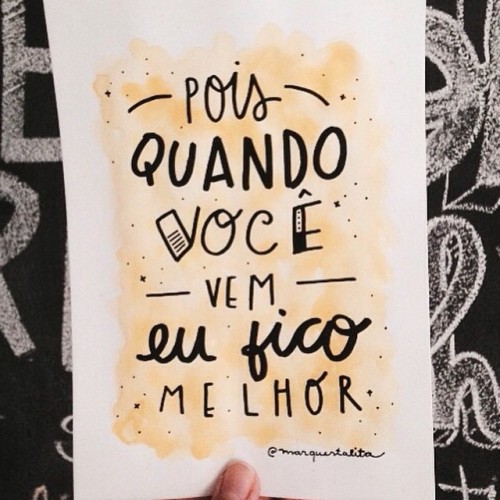 POIS
QUANDO
VOCÊ
VEM
eu fico
MELHOR
@marquestalita